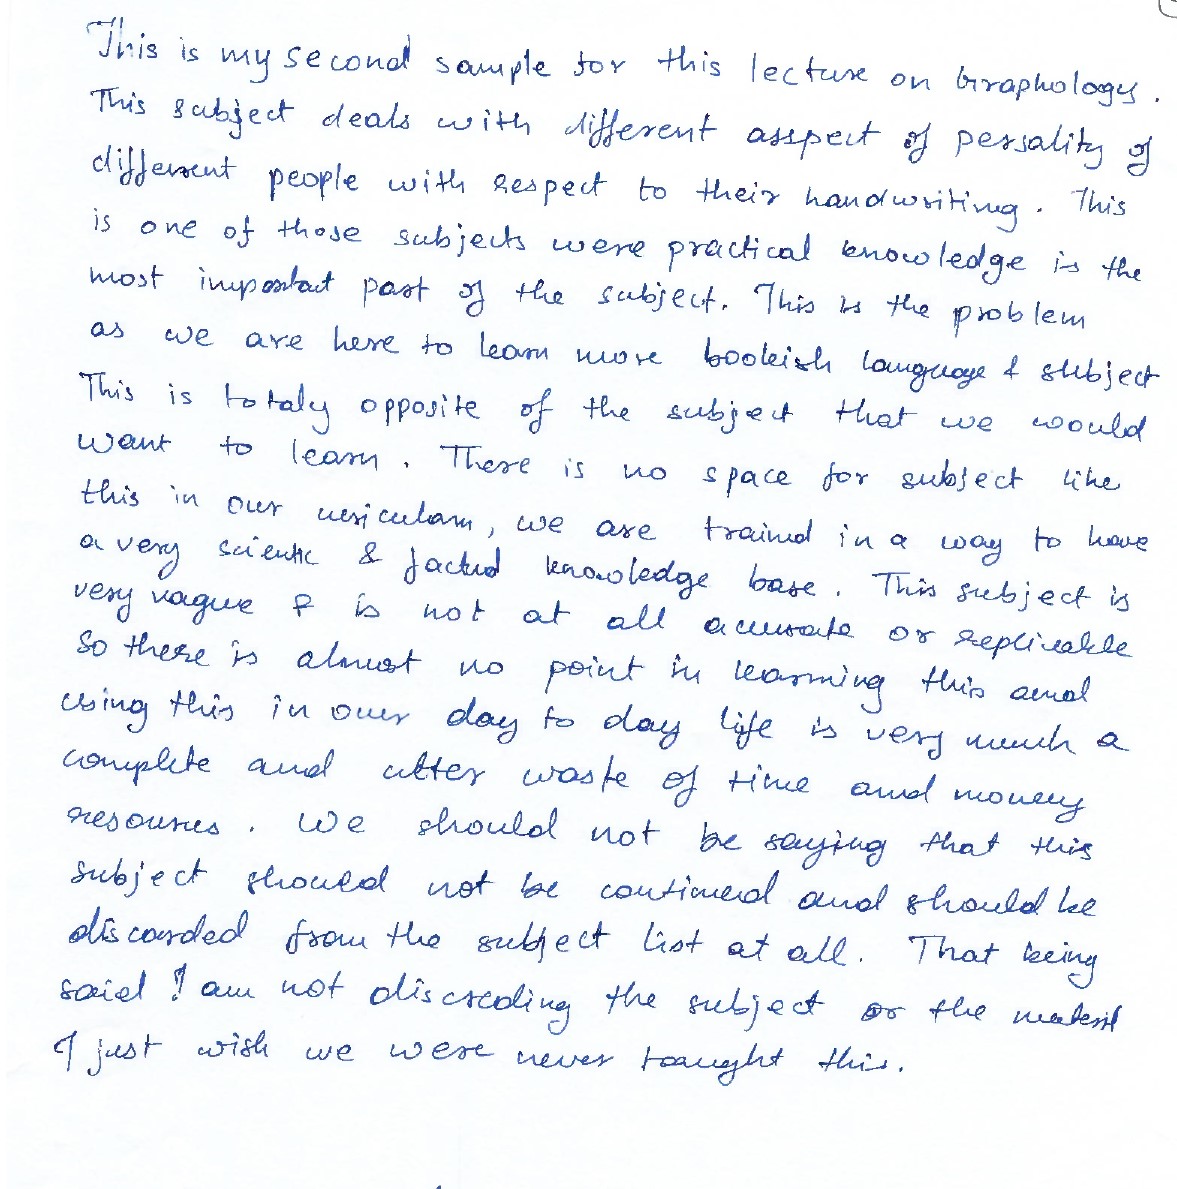 This is my second sample for this lecture on Graphology.
This subject deals with different asspect of persality of
different people with respect to their handwriting. This
is one of those subjects were practical knowledge is the
most important part of the subject. This is the problem
as we are here to learn more bookish language & subject
This is totaly opposite of the subject that we would
want to learn. There is no space for subject like
this in our curiculam, we are trained in a way to have
a very scientic & factud knowledge base. This subject is
very vague & is not at all accurate or replicable
So there is almost no point in learning this and
using this in our day to day life is very much a
complete and utter waste of time and money
resources. We should not be saying that this
subject should not be continued and should be
discarded from the subject list at all. That being
said I am not discreding the subject or the materil
I just wish we were never taught this.